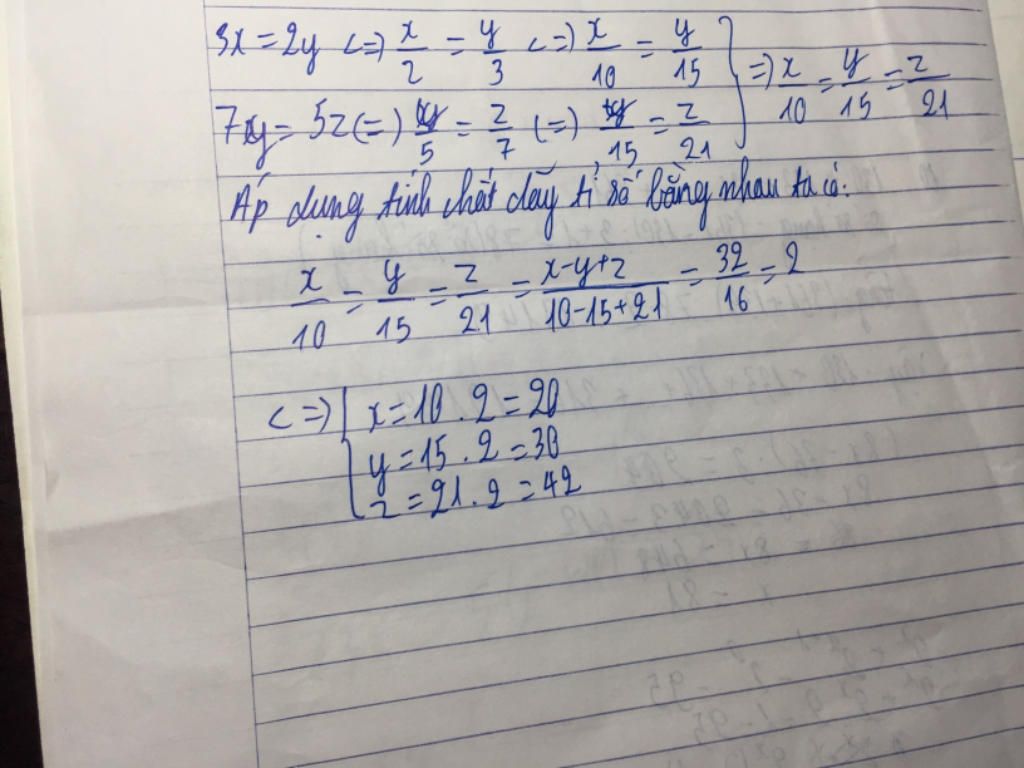 3x = 2y <=> x/2 = y/3 <=> x/10 = y/15 } => x/10 = y/15 = z/21
7y = 5z <=> y/5 = z/7 <=> y/15 = z/21
Áp dụng tính chất dãy tỉ số bằng nhau ta có:
x/10 = y/15 = z/21 = x-y+z/10-15+21 = 32/16 = 2
<=> { x = 10 . 2 = 20
y = 15 . 2 = 30
z = 21 . 2 = 42